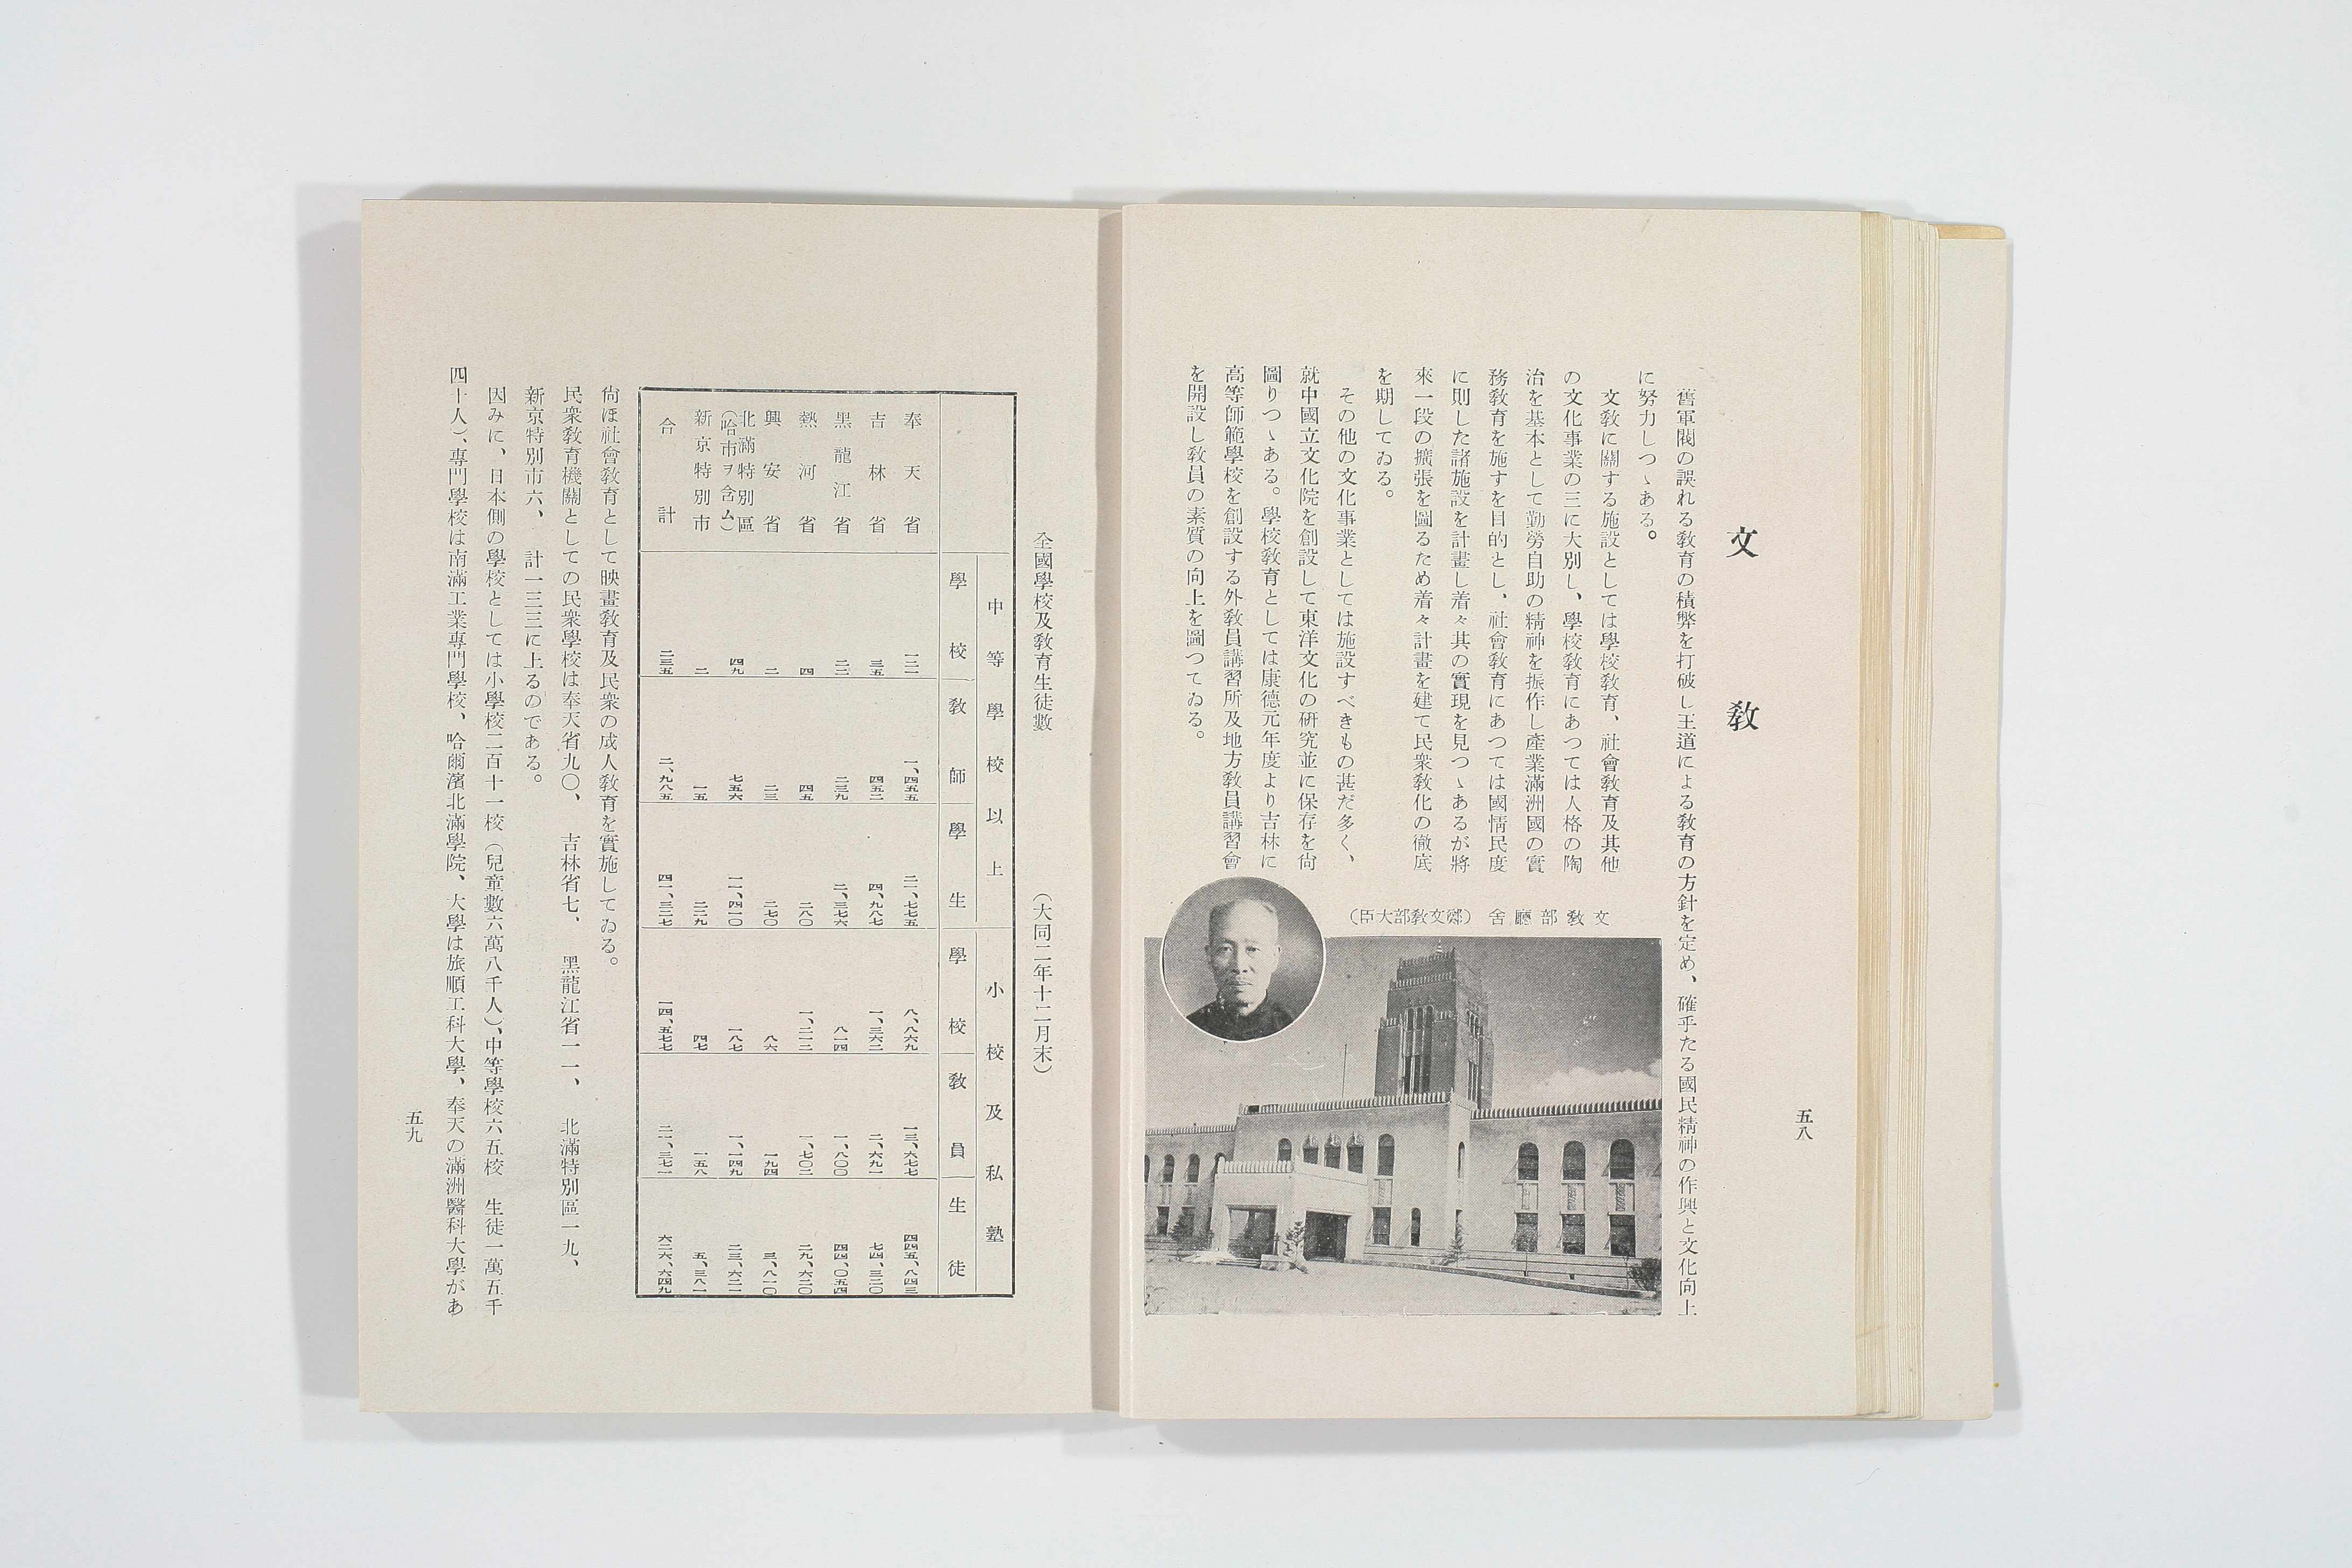 五八
文教
舊軍閥の誤れる敎育の積弊を打破し王道による敎育の方針を定め、確乎たる國民精神の作興と文化向上
に努力しつゝある。
文敎に關する施設としては學校敎育、社會敎育及其他
の文化事業の三に大別し、學校敎育にあつては人格の陶
治を基本として勤勞自助の精神を振作し產業滿洲國の實
務敎育を施すを目的とし、社會敎育にあつては國情民度
に則した諸施設を計畫し着々其の實現を見つゝあるが將
來一段の擴張を圖るため着々計畫を建て民衆敎化の徹底
を期してゐる。
その他の文化事業としては施設すべきもの甚だ多く、
就中國立文化院を創設して東洋文化の硏究並に保存を尙
圖りつゝある。學校敎育としては康德元年度より吉林に
高等師範學校を創設する外敎員講習所及地方敎員講習會
を開設し敎員の素質の向上を圖つてゐる。
文敎部廳舍（鄭文敎部大臣）
全國學校及敎育生徒數（大同二年十二月末）
中等學校以上 小校及私塾
學校 敎師 學生 學校 敎員 生徒
奉天省 一二一 一、四五五 二一、七七五 八、八六九 一三、六七七 四四五、八四三
吉林省 三五 四五二 四、九八七 一、三六二 二、六九一 七四、三二〇
黑龍江省 二二 二三九 二、三七六 八一四 一、八〇〇 四四、〇五四
熱河省 四 四五 二八〇 一、二一二 一、七〇二 二九、六二〇
興安省 二 二三 二七〇 八六 一九四 三、八一〇
北滿特別區（哈市ヲ含ム） 四九 七五六 一一、四一〇 一八七 一、一四九 二三、六二一
新京特別市 二 一五 二二九 四七 一五八 五、三八一
合計 二三五 二、九八五 四一、三二七 一四、五七七 二一、三七一 六二六、六四九
尙ほ社會敎育として映畫敎育及民衆の成人敎育を實施してゐる。
民衆敎育機關としての民衆學校は奉天省九〇、吉林省七、黑龍江省一一、北滿特別區一九、
新京特別市六、計一三三に上るのである。
因みに、日本側の學校としては小學校二百十一校（兒童數六萬八千人）、中等學校六五校 生徒一萬五千
四十人）、專門學校は南滿工業專門學校、哈爾濱北滿學院、大學は旅順工科大學、奉天の滿洲醫科大學があ
五九